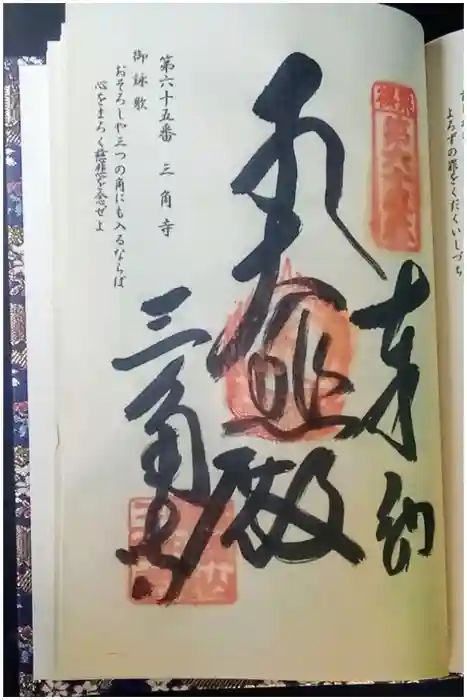 よろずの罪をくだくいしづち
奉納
大悲殿
三角寺
第六十五番 三角寺
御詠歌
おそろしや三つの角にも入るならば
心をまろく慈悲を念ぜよ